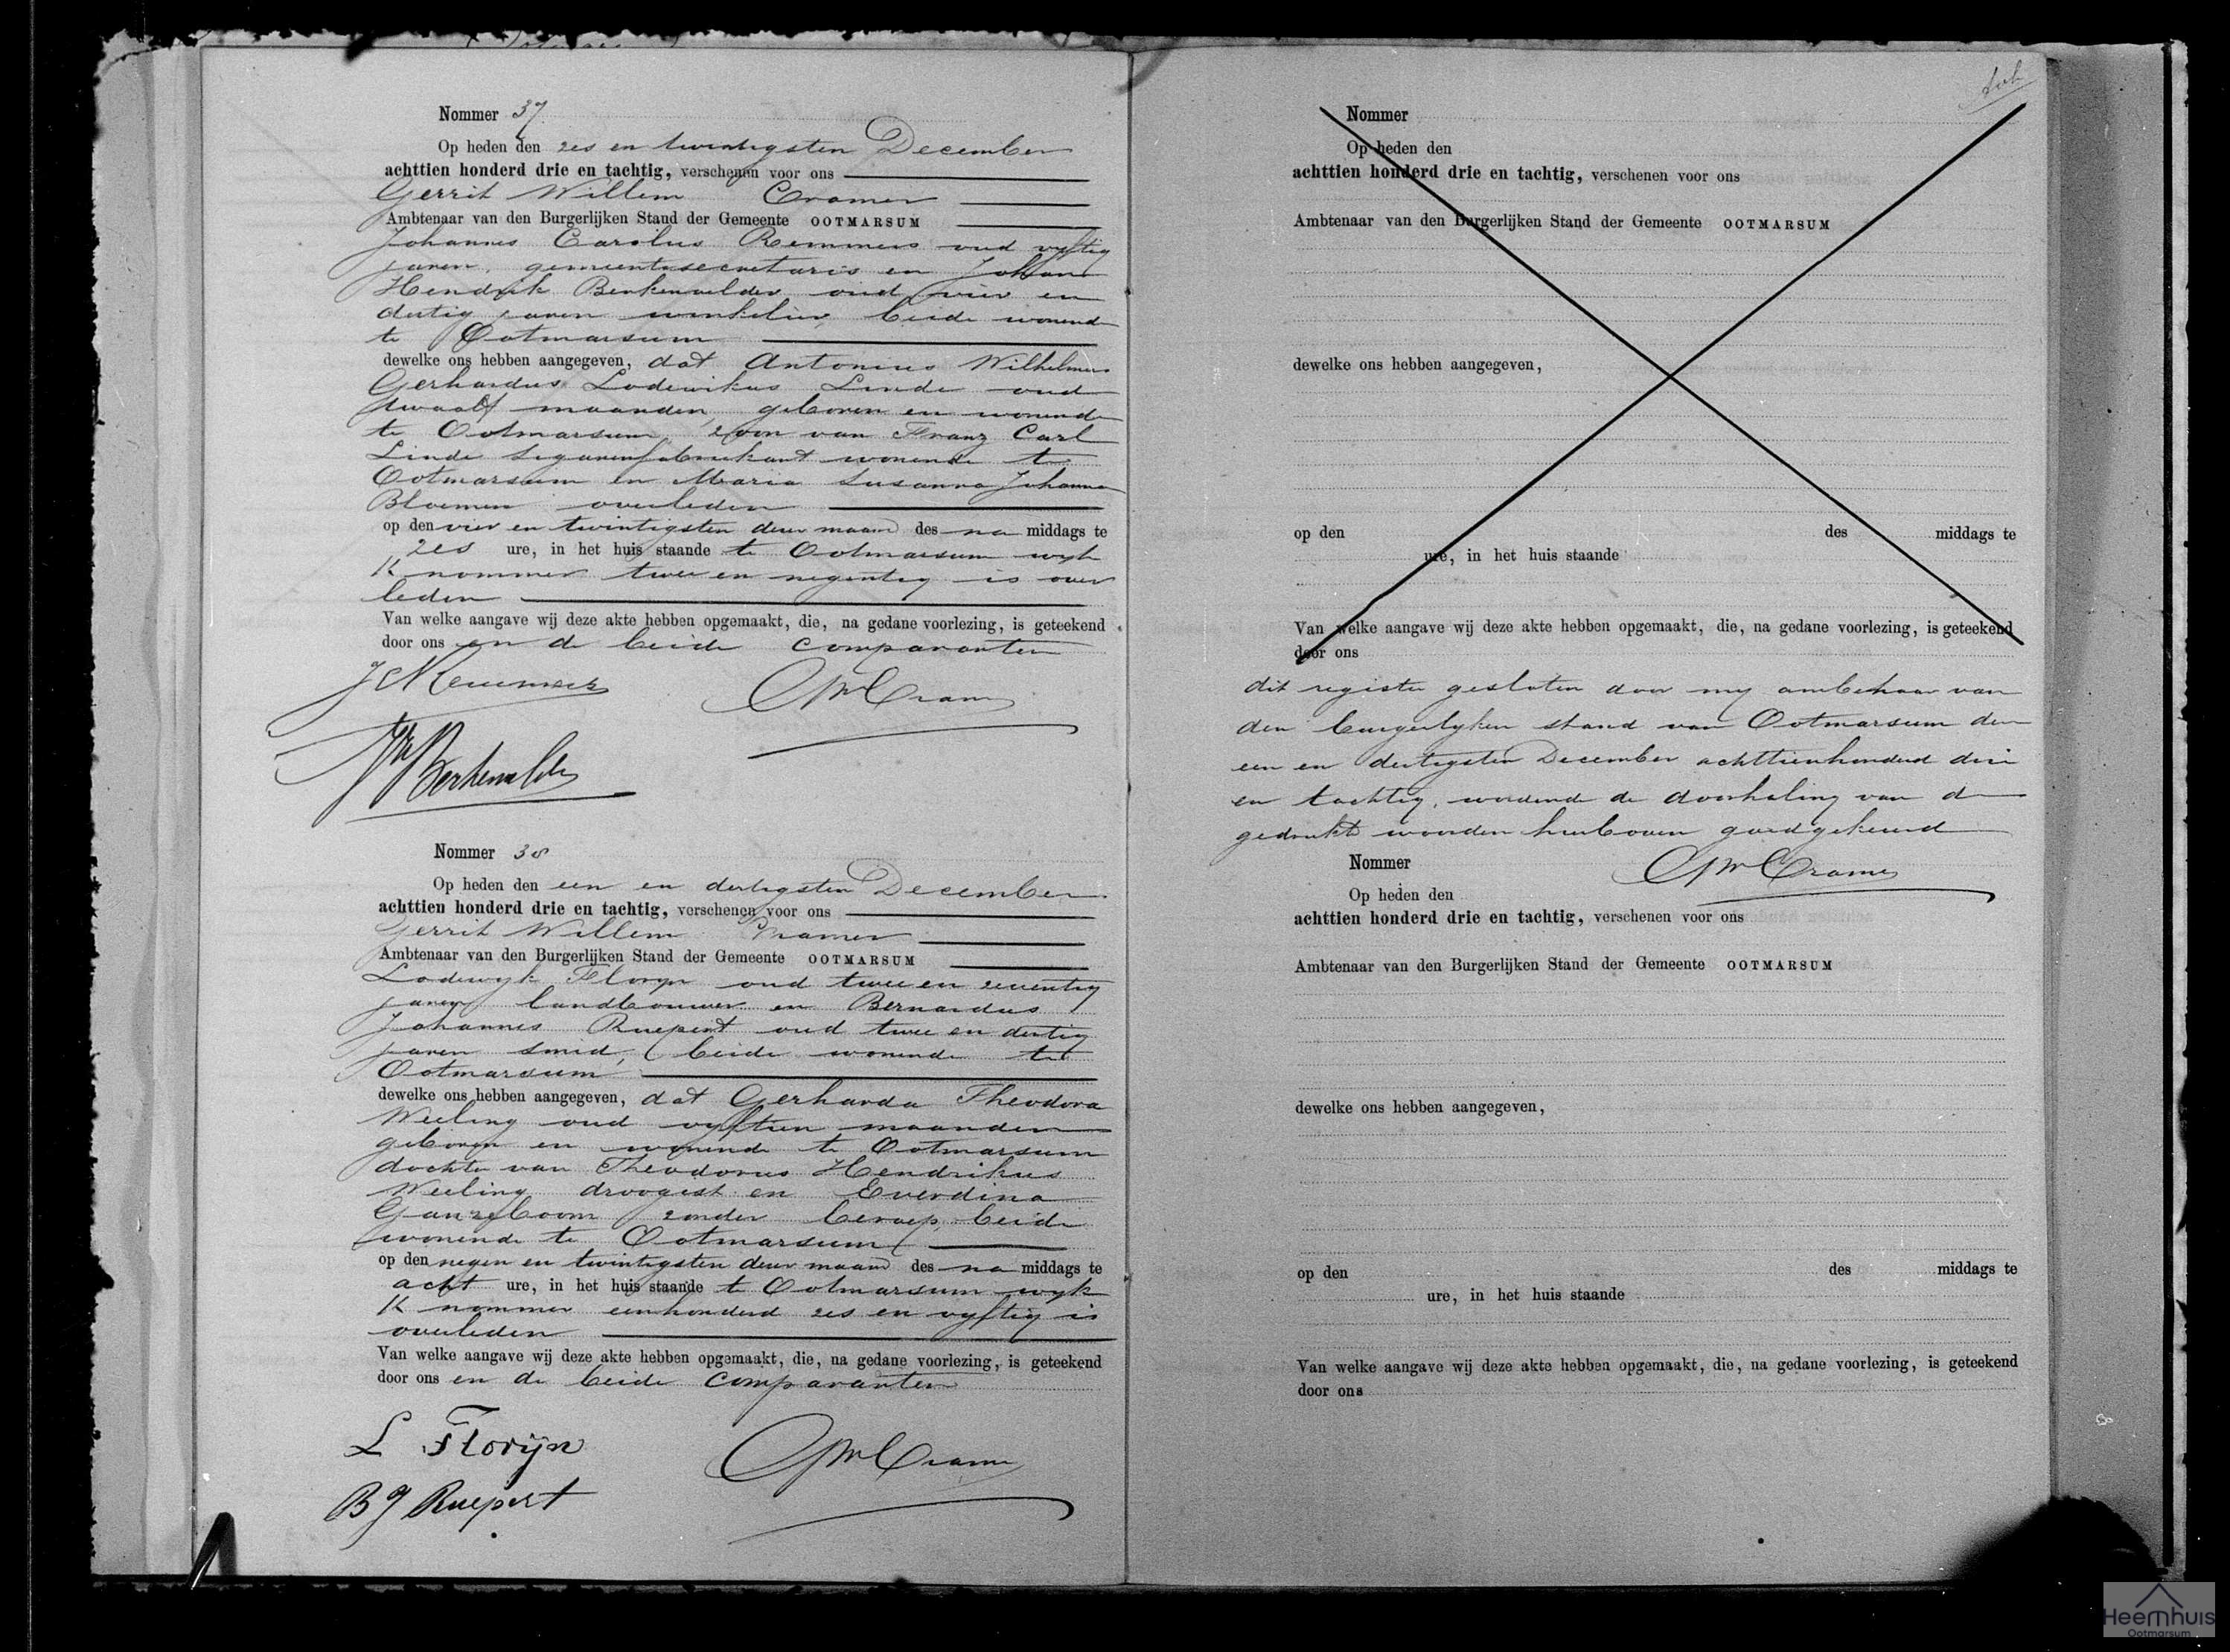 Nommer 37
Op heden den zes en twintigsten December
achttien honderd drie en tachtig, verschenen voor ons
Gerrit Willem Cramer
Ambtenaar van den Burgerlijken Stand der Gemeente OOTMARSUM
Johannes Carolus Remmers oud vyftig
jaren, gemeentesecretaris en Johann
Hendrik Berkenvelder oud vier en
dertig jaren winkelier, beide wonende
te Ootmarsum
dewelke ons hebben aangegeven, dat Antonius Wilhelmus
Gerhardus Lodewikus Linde oud
twaalf maanden, geboren en wonende
te Ootmarsum, zoon van Franz Carl
Linde sigarenfabriekant wonende te
Ootmarsum en Maria Susanna Johanna
Bloemen overleden
op den vier en twintigsten dezer maand des na middags te
zes ure, in het huis staande te Ootmarsum wyk
K nommer twee en negentig is over
leden
Van welke aangave wij deze akte hebben opgemaakt, die, na gedane voorlezing, is geteekend
door ons en de beide comparanten
JC Remmers GW Cramer
JH Berkenvelder
Nommer 38
Op heden den een en dertigsten December
achttien honderd drie en tachtig, verschenen voor ons
Gerrit Willem Cramer
Ambtenaar van den Burgerlijken Stand der Gemeente OOTMARSUM
Lodewyk Floryn oud twee en zeventig
jaren landbouwer en Bernardus
Johannes Ruepert oud twee en dertig
jaren smid, beide wonende te
Ootmarsum
dewelke ons hebben aangegeven, dat Gerharda Theodora
Weeling oud vyftien maanden
geboren en wonende te Ootmarsum
dochter van Theodorus Hendrikus
Weeling droogist en Everdina
Ganzeboom zonder beroep beide
wonende te Ootmarsum
op den negen en twintigsten dezer maand des na middags te
acht ure, in het huis staande te Ootmarsum wyk
K nommer eenhonderd zes en vyftig is
overleden
Van welke aangave wij deze akte hebben opgemaakt, die, na gedane voorlezing, is geteekend
door ons en de beide comparanten
L Florijn GW Cramer
B J Ruepert
Nommer
Op heden den
achttien honderd drie en tachtig, verschenen voor ons
Ambtenaar van den Burgerlijken Stand der Gemeente OOTMARSUM
dewelke ons hebben aangegeven,
op den des middags te
ure, in het huis staande
Van welke aangave wij deze akte hebben opgemaakt, die, na gedane voorlezing, is geteekend
door ons
dit register gesloten door my ambtenaar van
den burgerlyken stand van Ootmarsum den
een en dertigsten December achttienhonderd drie
en tachtig, wordende de doorhaling van de
gedrukte woorden hierboven goedgekeurd
Nommer GW Cramer
Op heden den
achttien honderd drie en tachtig, verschenen voor ons
Ambtenaar van den Burgerlijken Stand der Gemeente OOTMARSUM
dewelke ons hebben aangegeven,
op den des middags te
ure, in het huis staande
Van welke aangave wij deze akte hebben opgemaakt, die, na gedane voorlezing, is geteekend
door ons
Heemhuis
Ootmarsum